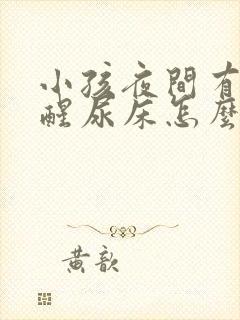 小孩夜間有
醒尿床怎麼
黃歆